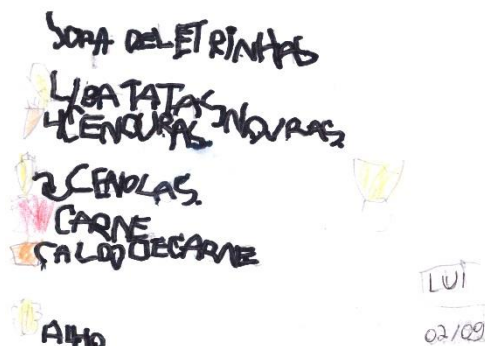 SOPA DELETRINHAS
4 BATATAS
4 CENOURAS NOURAS
2 CENOLAS
CARNE
CALDO DECARNE
ALHO
LUI
02/09